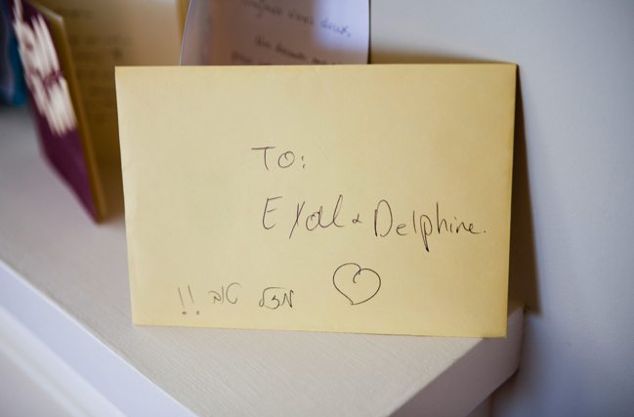 TO:
Eyal & Delphine.
מזל טוב !!